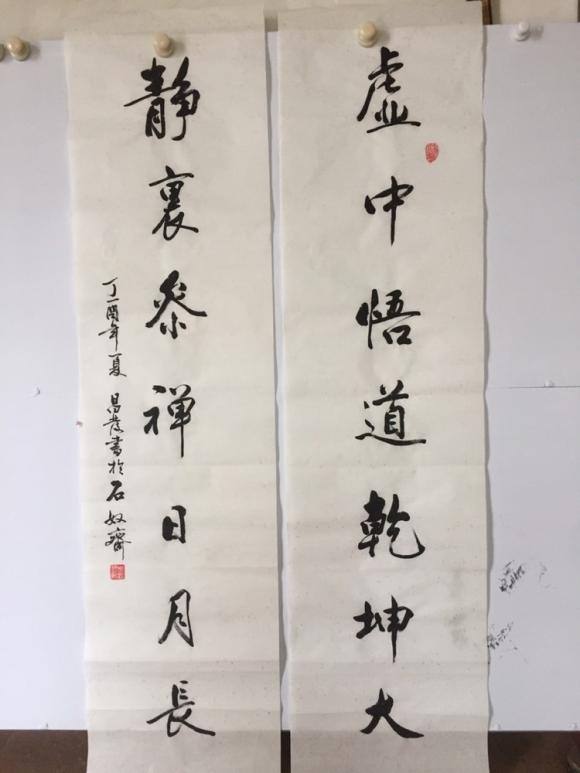 虚中悟道乾坤大
静裏参禅日月長
丁酉年夏 昌发書於石奴齋